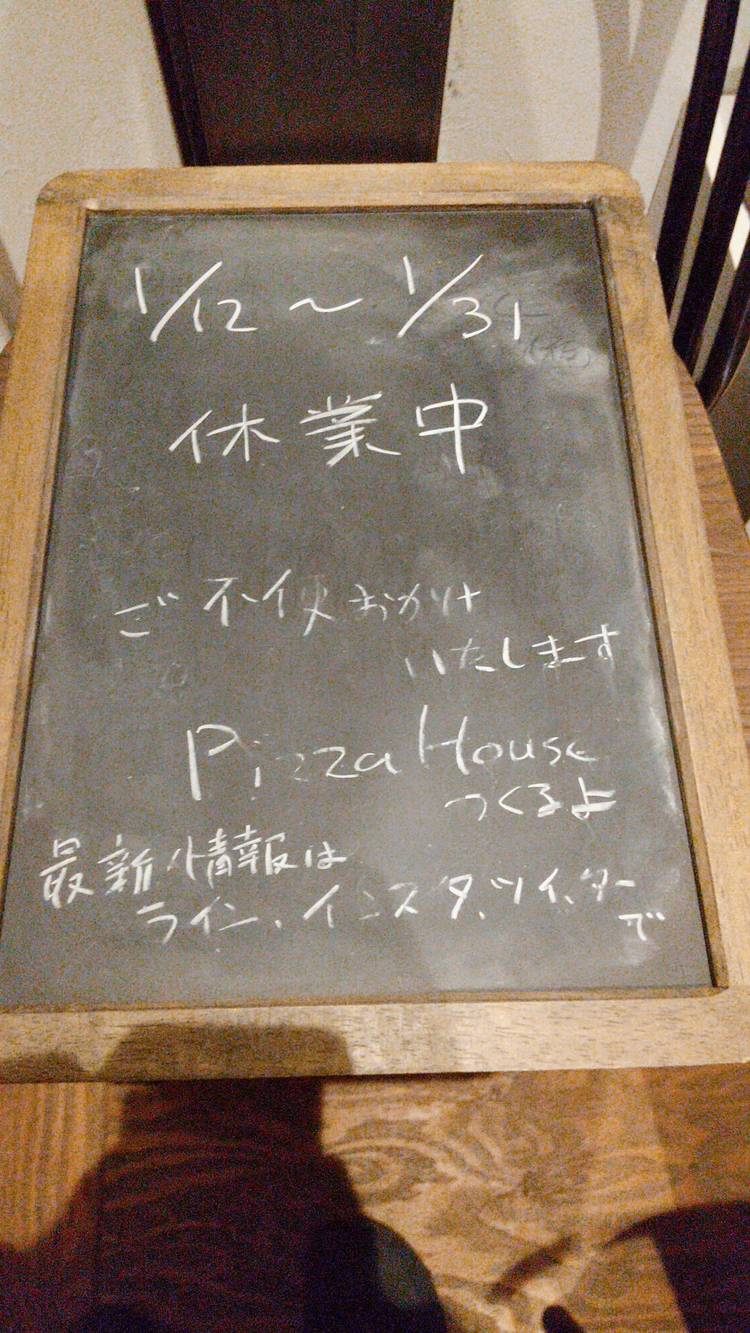 1/12～1/31
休業中
ご不便おかけ
いたします
Pizza House
つくるよ
最新情報は
ライン、インスタ、ツイッター
で